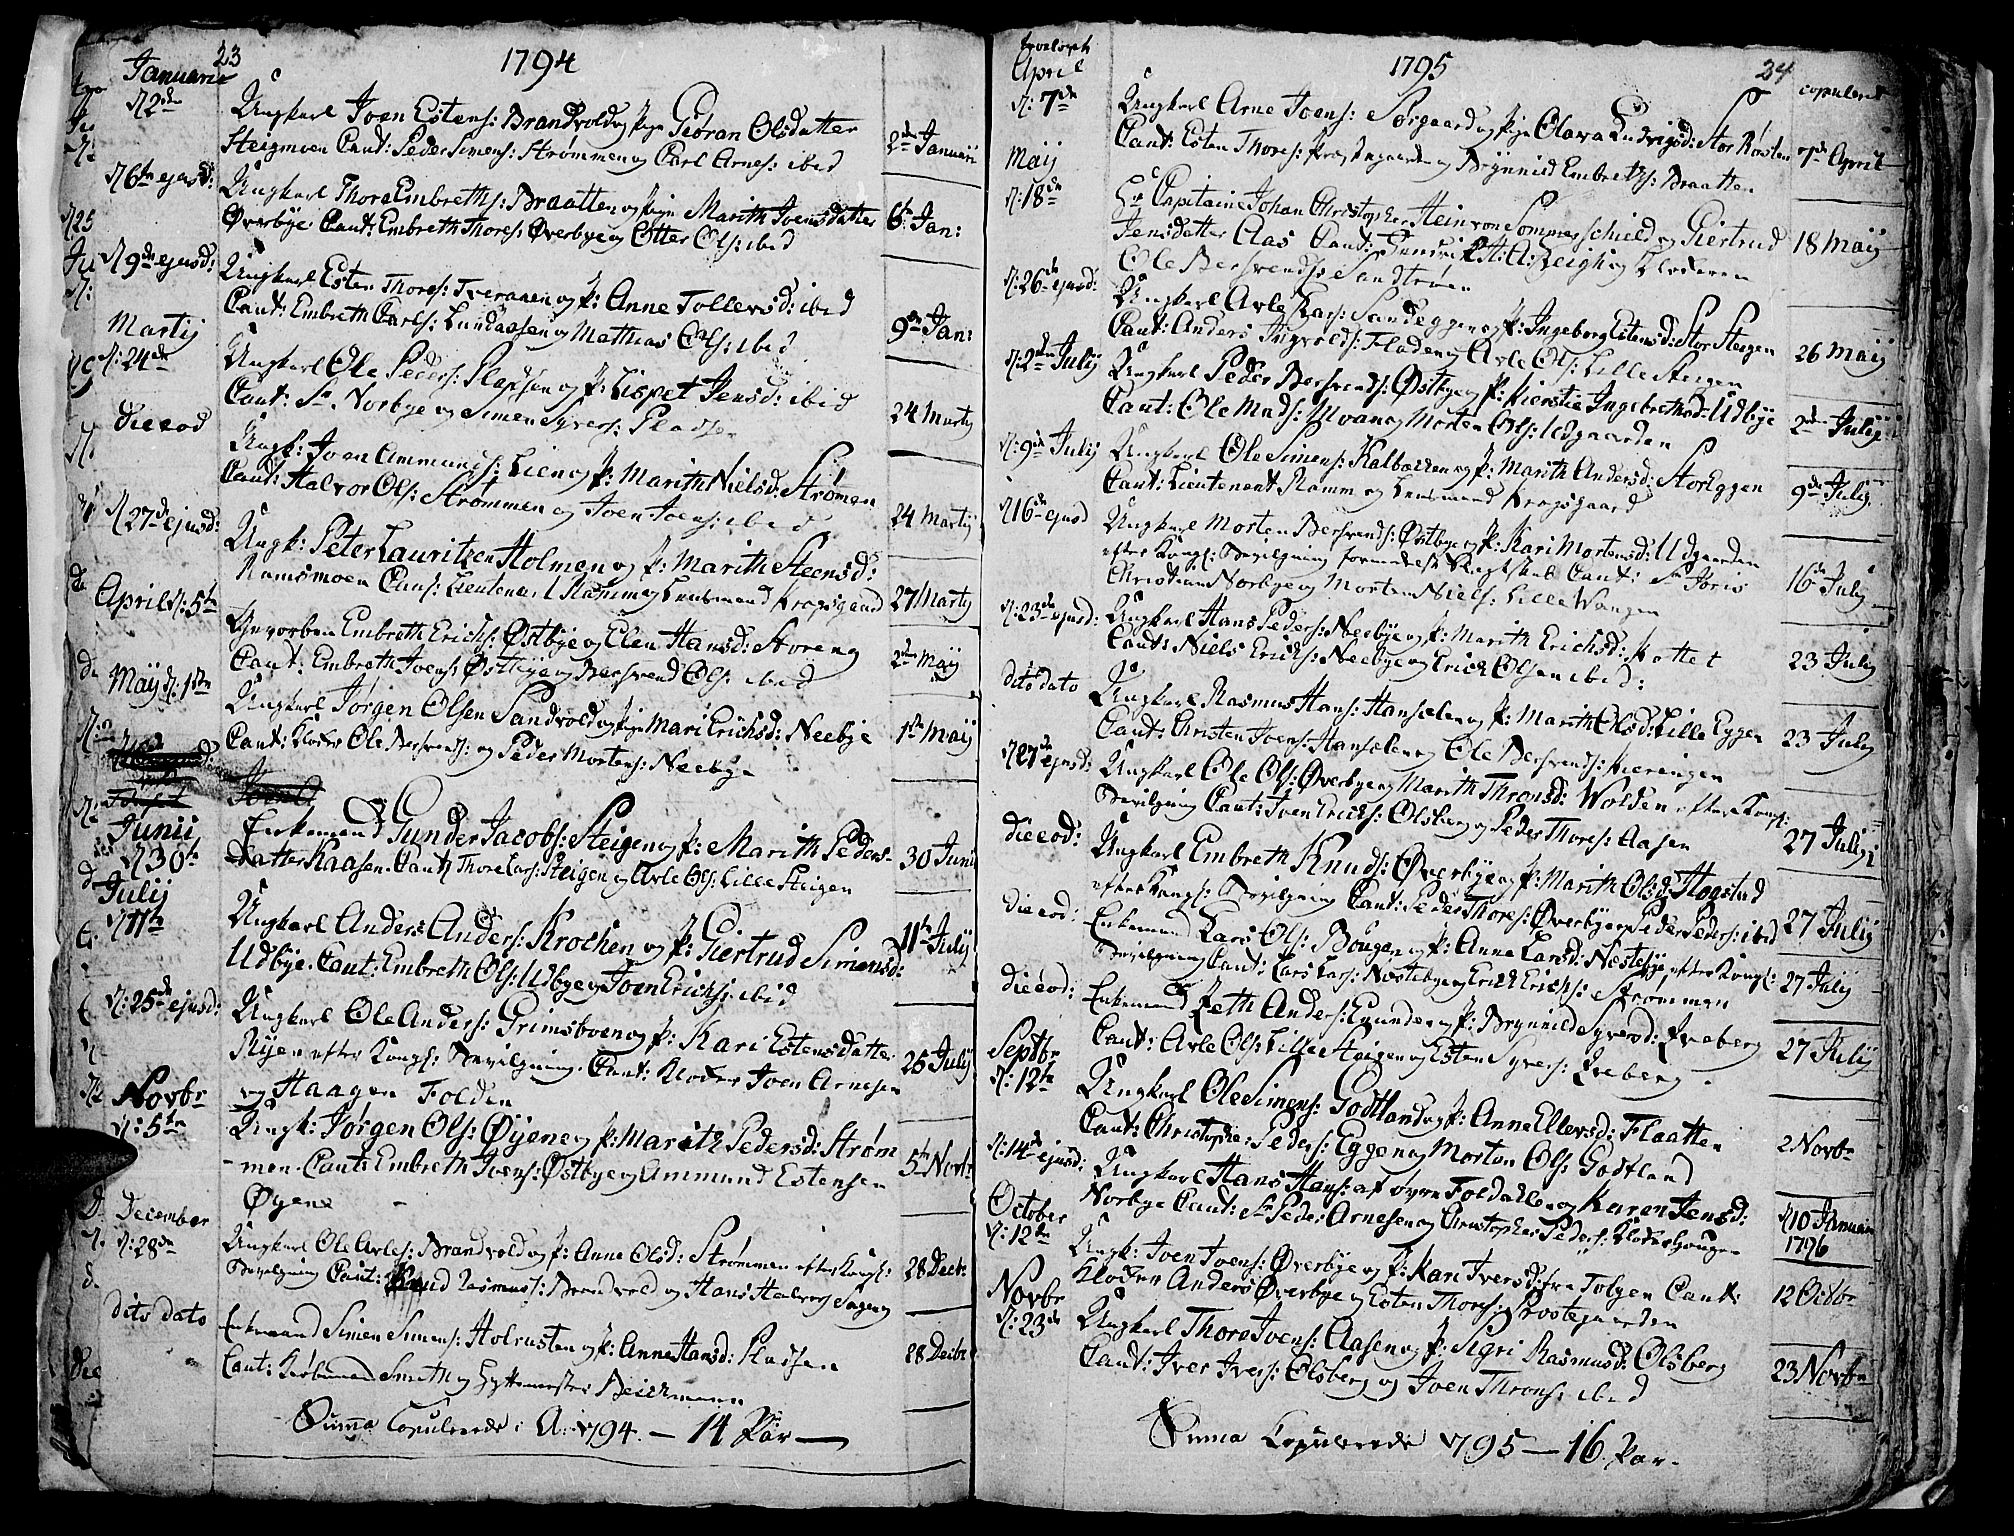 23
1794
Januarii
d 2den
Ungkarl Joen Estens: Brandvold og Pige Giøran Olsdatter
Steigmoen Caut: Peder Simens: Strømmen og Carl Arnes: ibid
2den Januarii
d 6te ejusd:
Ungkarl Thore Embreths: Braatten og Pige Marith Joensdatter
Øverbye Caut: Embreth Thores: Øverbye og Otter Ols: ibid
6te Jan:
d 9de ejusd:
Ungkarl Esten Thores: Tveraaen og P: Anne Tollevsd: ibid
Caut: Embreth Carls: Lundaasen og Mathias Ols: ibid
9de Jan:
Martij
d: 24de
Ungkarl Ole Peders: Pladsen og P: Lispet Jensd: ibid
Caut: Sr. Norbye og Simen Syvers: Pladsen
24 Martij
die eod
Ungk: Joen Ammunds: Lien og P: Marith Nielsd: Strømen
Caut: Halvor Ols: Strømmen og Joen Joens: ibid
24 Martij
d 27de ejusd:
Ungk: Peter Lauritzen Holmen og P: Marith Steensd:
Ramsmoen Caut: Lieutenant Ramm og Lensmand Kropsgaard
27 Martij
April d: 5te
Gevorben Embreth Erichs: Østbye og Elen Hansd: Storeng
Caut: Embreth Joens: Østbye og Bersvend Ols: ibid
2den Maij
Maij d: 1ste
Ungkarl Jørgen Olsen Sandvold og Pige Mari Erichsd: Neebye
Caut: Klokker Ole Bersvends: og Peder Mortens: Neebye
1ste Maij
Junii
d 30te
Enkemand Gunder Jacobs: Steigen og P: Marith Peders-
datter Kaasen. Caut: Thore Lars: Steigen og Arle Ols: Lille Steigen
30 Junii
Julij
d 11te
Ungkarl Anders Anders: Krochen og P: Giertrud Simensd:
Udbye. Caut: Embreth Ols: Udbye og Joen Erichs: ibid
11te Julij
d: 25de ejusd:
Ungkarl Ole Anders: Grimsboen og P: Kari Estensdatter
Ryen efter Kongl: Bevilgning. Caut: Klokker Joen Arnesen
og Haagen Folden
25 Julij
Novbr
d: 5te
Ungk: Jørgen Ols: Øyen og P: Marith Pedersd: Strøm
-men. Caut: Embreth Joens: Østbye og Ammund Estensen
Øyen
5te Novbr
December
d: 28de
Ungkarl Ole Arles: Brandvold og P: Anne Olsd: Strømmen efter Kongl:
Bevilgning Caut: Knud Rasmus: Brandvold og Hans Halvors:
28 Decbr:
dito dato
Enkemand Simen Simens: Holrusten og P: Anne Hansd: Pladsen
Caut: Kiøbmand Smith og Hyttemester Beichmann
28 Decbr
Suma Copulerede i A: 1794. — 14 Par —
trolovet
1795
24
copuleret
April
d: 7de
Ungkarl Arne Joens: Sørgaard og Pige Olava Ludvigsd: Stor Røsten
Caut: Esten Thores: Prostgaarden og Brynnild Embreths: Braatten
7de April
Maij
d: 18de
Hr Capitaine Johan Christopher Hein von Sommerschield og Giertrud
Jensdatter Aas Caut: Hendrik St: A: Zeigh og Klokkeren
Ole Bersvends: Sandtrøen
18 Maij
d: 26de ejusd:
Ungkarl Arle Lars: Sandeggen og P: Ingeborg Estensd: Stor Steigen
Caut: Anders Ingvolds: Fladen og Arle Ols: Lille Steigen
26 Maij
d: 2den Julij
Ungkarl Peder Bersvends: Østbye og P: Kierstie Ingebrethsd: Udbye
Caut: Ole Mads: Moan og Morten Ols: Udgaarden
2den Julij
d: 9de Julij
Ungkarl Ole Simens: Kalbækken og P: Marith Andersd: Stor Eggen
Caut: Lieutenant Ramm og Lensmand Kropsgaard
9de Julij
d 16de ejusd
Ungkarl Morten Bersvends: Østbye og P: Kari Mortensd: Udgaarden
efter Kongl: Bevilgning formedelst Slægtskab Caut: Sr Joris
Christian Norbye og Morten Niels: Lille Wangen
16de Julij
d: 23de ejusd:
Ungkarl Hans Peders: Neebye og P: Marith Erichsd: Kottet
Caut: Niels Erichs: Neebye og Erich Olsen ibid:
23 Julij
dito dato
Ungkarl Rasmus Hans: Hanselen og P: Marith Olsd: Lille Eggen
Caut: Christen Joens: Hanselen og Ole Bersvends: Kieringen
23 Julij
d 27de ejusd:
Ungkarl Ole Ols: Øverbye og Marith Thronsd: Wolden efter Kongl:
Bevilgning Caut: Joen Erichs: Olsberg og Peder Thores: Aasen
27 Julij
die eod:
Ungkarl Embreth Knuds: Øverbye og P: Marith Olsd: Hogstad
efter Kongl: Bevilgning Caut: Peder Thores: Øverbye og Peder Peders: ibid
27 Julij
die eod:
Enkemand Lars Ols: Bougen og P: Anne Larsd: Næsteby efter Kongl:
Bevilgning Caut: Lars Lars: Næstebye og Erich Erichs: Strømmen
27 Julij
die eod:
Enkemand Zeth Anders: Lunden og P: Brynnild Syversd: Qveberg
Caut: Arle Ols: Lille Steigen og Esten Syvers: Qveberg
27 Julij
Septbr
d: 12te
Ungkarl Ole Simens: Godtland og P: Anne Ellevsd: Flaatten
Caut: Christopher Peders: Eggen og Morten Ols: Godtland
2 Novbr
d: 14de ejusd:
Ungkarl Hans Hans: af øvre Foldalen og Karen Jensd:
Norbye Caut: Sr Peder Arnesen og Christopher Peders: Klokkerhougen
d 10 Januar
1796
October
d: 12te
Ungk: Joen Joens: Øverbye og P: Kari Iversd: fra Tolgen Caut:
Klokker Anders Øverbye og Esten Thores: Prostegaarden
12 Octbr
Novbr
d: 23de
Ungkarl Thore Joens: Aasen og P: Sigri Rasmusd: Olsberg
Caut: Iver Ivers: Olsberg og Joen Throns: ibid
23 Novbr
Suma Copulerede 1795 — 16. Par.